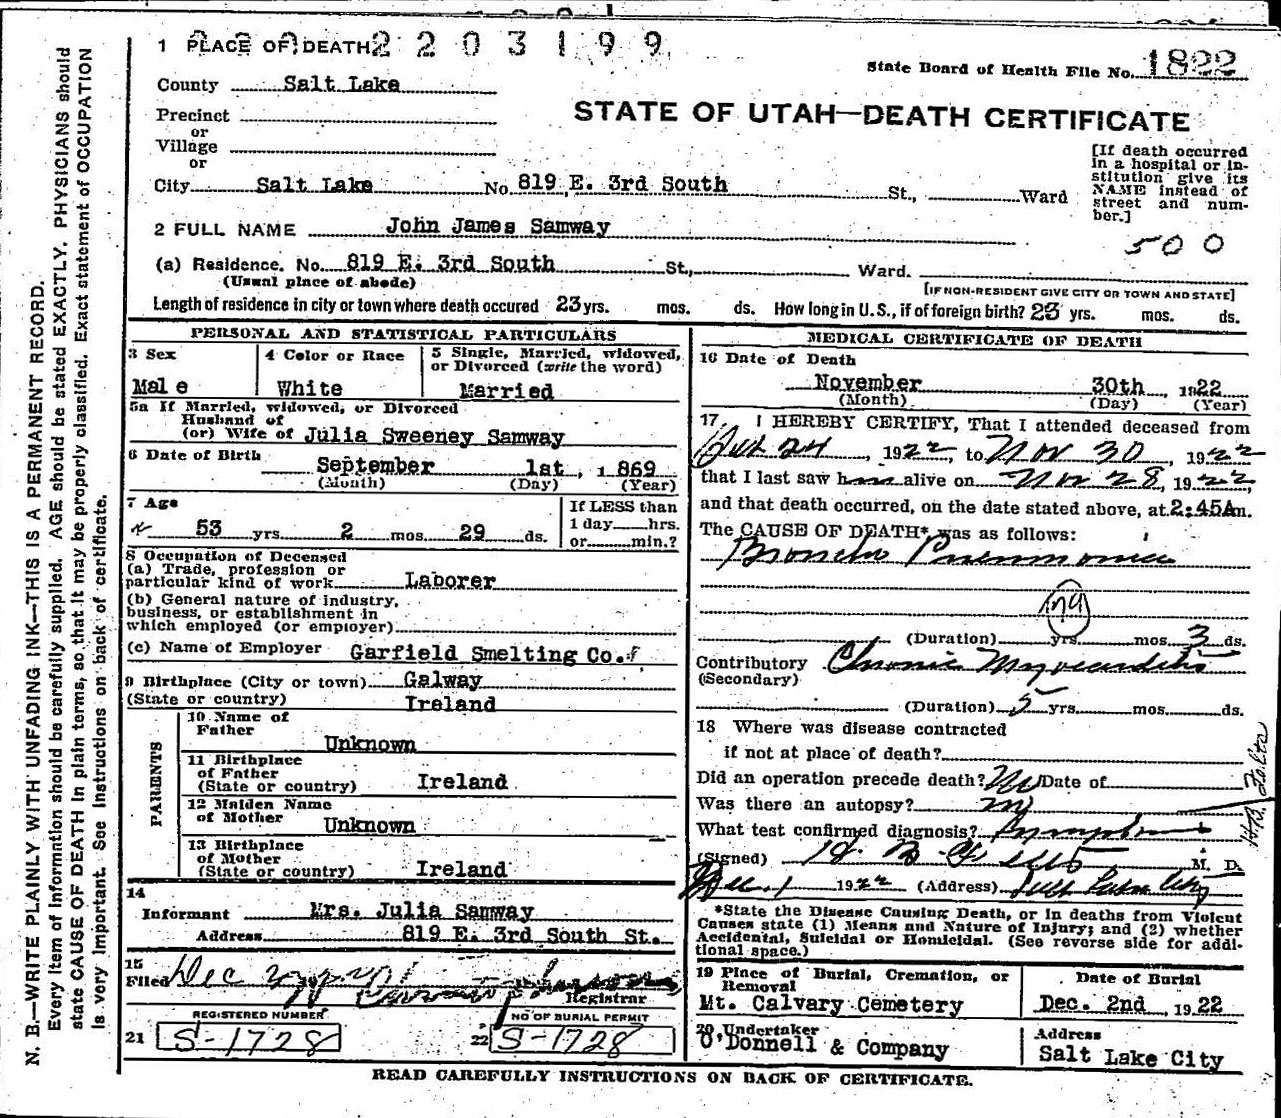 1 PLACE OF DEATH 2 2 0 3 1 9 9
State Board of Health File No. 1822
County Salt Lake
STATE OF UTAH—DEATH CERTIFICATE
Precinct
or
Village
or
City Salt Lake No 819 E. 3rd South St., Ward
[If death occurred
in a hospital or in-
stitution give its
NAME instead of
street and num-
ber.]
500
2 FULL NAME John James Samway
(a) Residence. No. 819 E. 3rd South St., Ward.
(Usual place of abode)
[IF NON-RESIDENT GIVE CITY OR TOWN AND STATE]
Length of residence in city or town where death occured 23 yrs. mos. ds. How long in U.S., if of foreign birth? 23 yrs. mos. ds.
PERSONAL AND STATISTICAL PARTICULARS
3 Sex
Male
4 Color or Race
White
5 Single, Married, widowed,
or Divorced (write the word)
Married
5a If Married, widowed, or Divorced
Husband of
(or) Wife of Julia Sweeney Samway
6 Date of Birth
September 1st, 1869
(Month) (Day) (Year)
7 Age
53 yrs. 2 mos. 29 ds.
If LESS than
1 day hrs.
or min.?
8 Occupation of Deceased
(a) Trade, profession or
particular kind of work Laborer
(b) General nature of industry,
business, or establishment in
which employed (or employer)
(c) Name of Employer Garfield Smelting Co.
9 Birthplace (City or town) Galway
(State or country) Ireland
PARENTS
10 Name of
Father
Unknown
11 Birthplace
of Father
(State or country) Ireland
12 Maiden Name
of Mother
Unknown
13 Birthplace
of Mother
(State or country) Ireland
14
Informant Mrs. Julia Samway
Address 819 E. 3rd South St.
15
Filed Dec
Registrar
REGISTERED NUMBER
21 S-1728
NO OF BURIAL PERMIT
22 S-1728
MEDICAL CERTIFICATE OF DEATH
16 Date of Death
November 30th, 1922
(Month) (Day) (Year)
17. I HEREBY CERTIFY, That I attended deceased from
24, 1922, to Nov 30, 1922
that I last saw him alive on Nov 28, 1922,
and that death occurred, on the date stated above, at 2:45A m.
The CAUSE OF DEATH* was as follows:
Broncho Pneumonia
(Duration) yrs. mos. 3 ds.
Contributory Chronic Myocarditis
(Secondary)
(Duration) 5 yrs. mos. ds.
18 Where was disease contracted
if not at place of death?
Did an operation precede death? No Date of
Was there an autopsy? no
What test confirmed diagnosis? Symptoms
(Signed) M. D.
Dec. 1 1922 (Address) Salt Lake City
*State the Disease Causing Death, or in deaths from Violent
Causes state (1) Means and Nature of Injury; and (2) whether
Accidental, Suicidal or Homicidal. (See reverse side for addi-
tional space.)
19 Place of Burial, Cremation, or
Removal
Mt. Calvary Cemetery
Date of Burial
Dec. 2nd, 1922
20 Undertaker
O'Donnell & Company
Address
Salt Lake City
READ CAREFULLY INSTRUCTIONS ON BACK OF CERTIFICATE.
N. B.—WRITE PLAINLY WITH UNFADING INK—THIS IS A PERMANENT RECORD.
Every item of information should be carefully supplied. AGE should be stated EXACTLY. PHYSICIANS should
state CAUSE OF DEATH in plain terms, so that it may be properly classified. Exact statement of OCCUPATION
is very important. See Instructions on back of certificate.